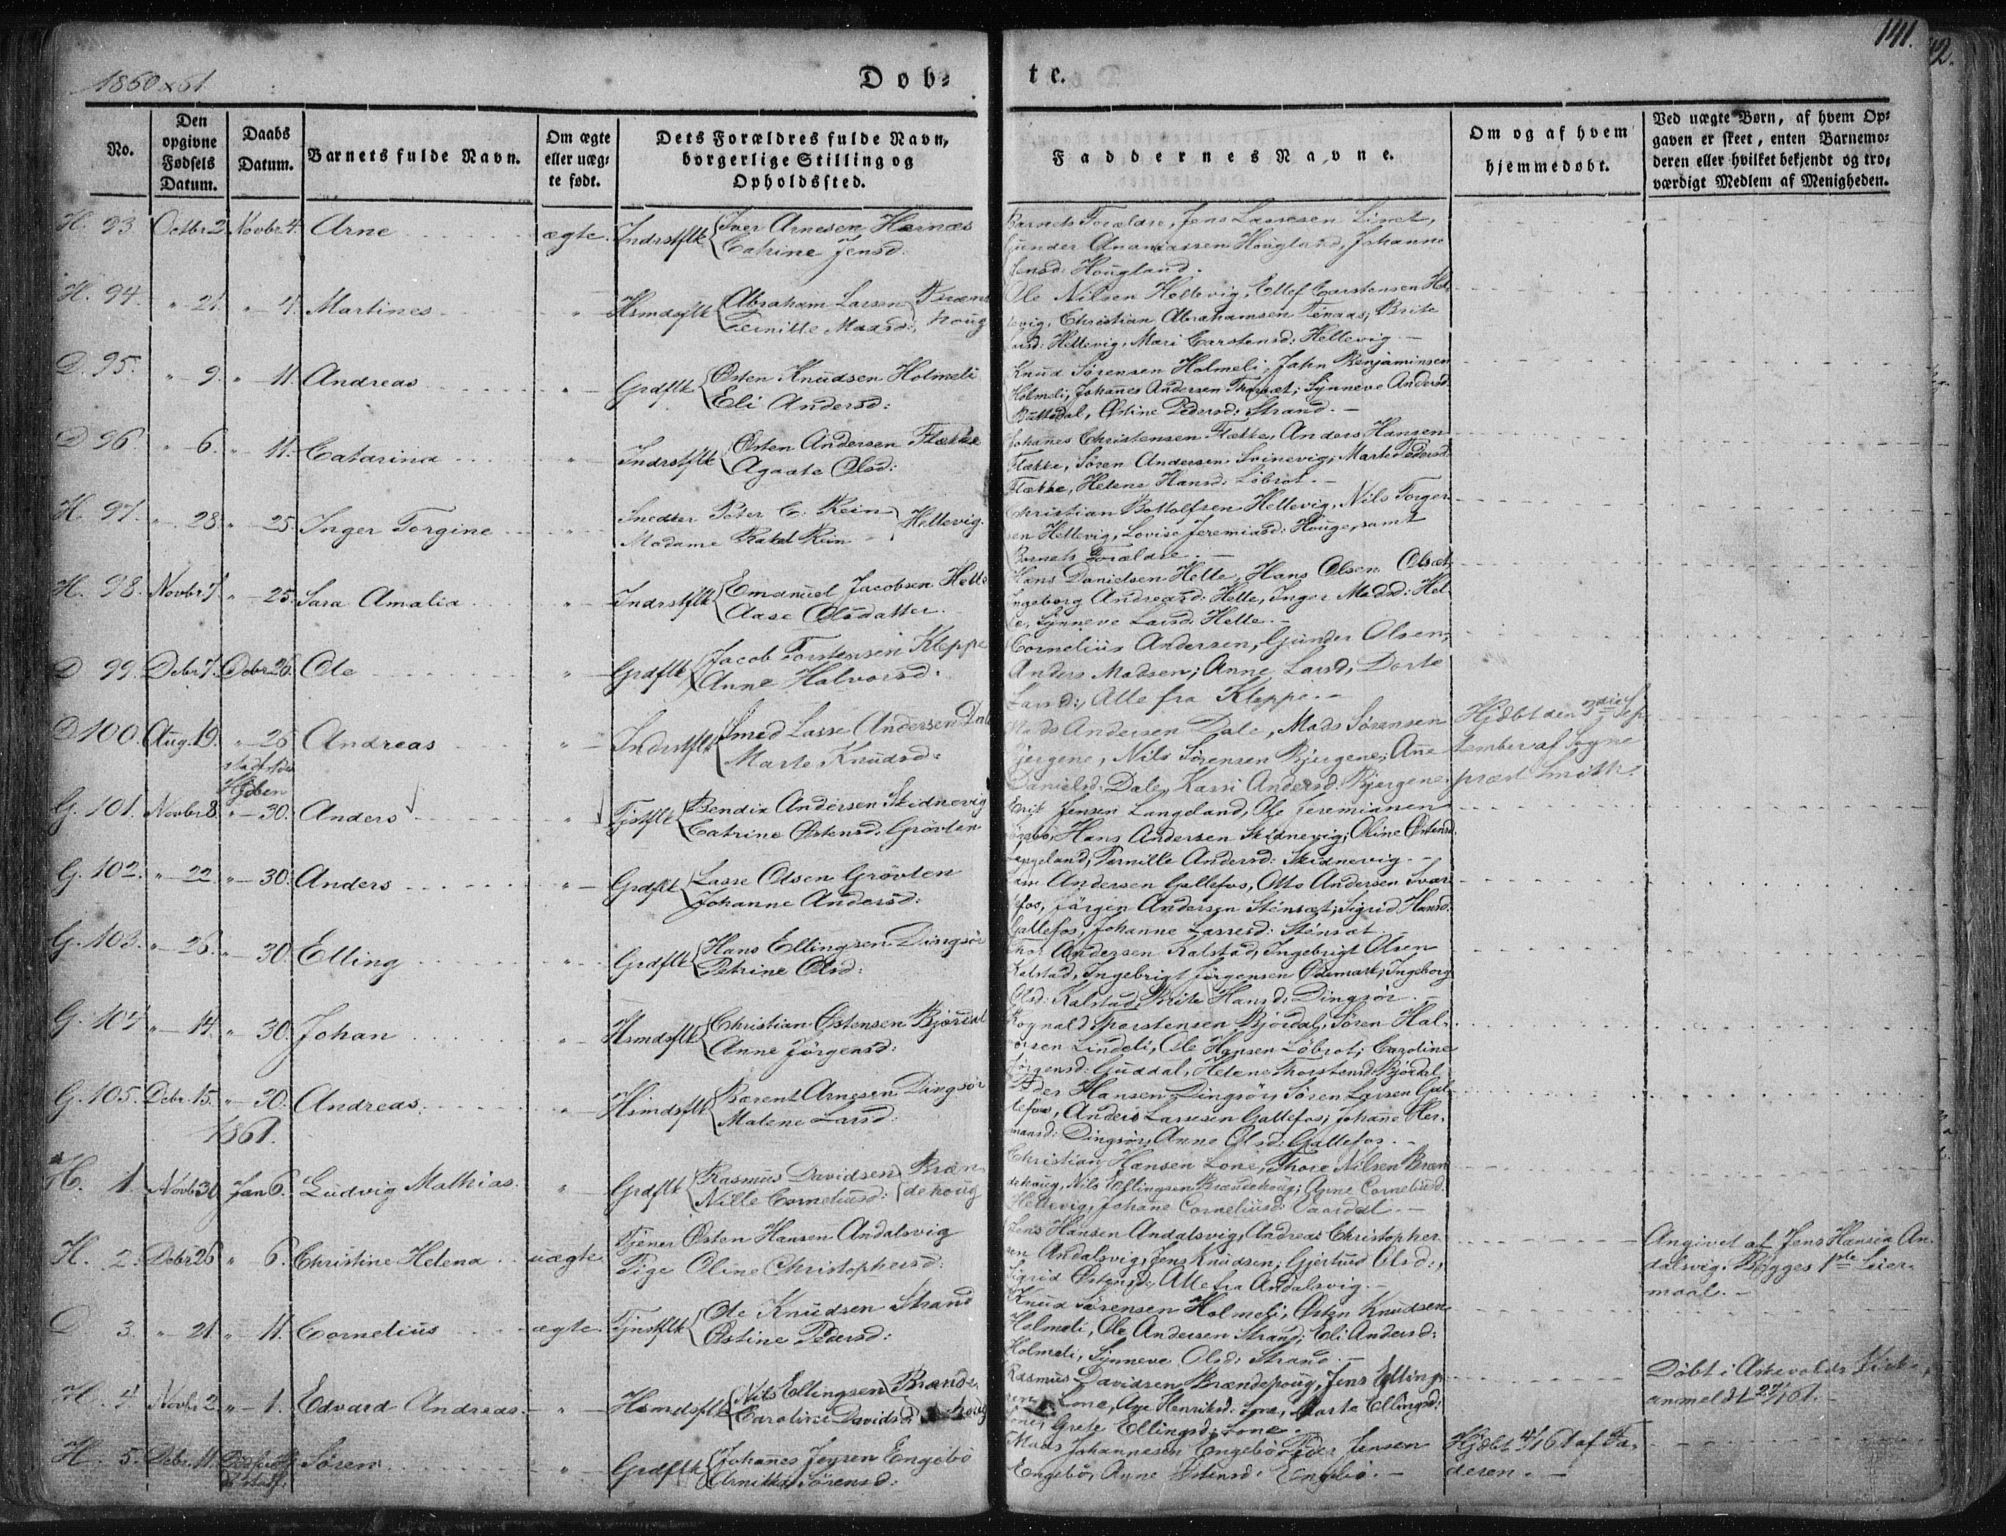 1860 & 61
Døb-
te.
141.
No.
Den
opgivne
Fødsels
Datum.
Daabs
Datum.
Barnets fulde Navn.
Om ægte
eller uæg-
te født.
Dets Forældres fulde Navn,
borgerlige Stilling og
Opholdssted.
Faddernes Navne.
Om og af hvem
hjemmedøbt.
Ved uægte Børn, af hvem Op-
gaven er skeet, enten Barnemo-
deren eller hvilket bekjendt og tro-
værdigt Medlem af Menigheden.
H. 93. Octbr 2. Novbr 4. Arne ægte. Indrstflk Iver Arnesen Hærnæs
Catrine Jensd:
Barnets Forældre, Jens Larsen
Gunder Ananiassen Hougland, Johanne
Jensd: Hougland.
H. 94. " 21. " 4. Martines " Hsmdsflk Abraham Larsen
Pernille Madsd:
Ole Nilsen Hellevig, Ellef Carstensen Hel-
levig, Christian Abrahamsen Brite
Hellevig, Mari Carstensd: Hellevig. -
D. 95. " 9. " 11. Andreas " Grdflk Østen Knudsen Holmeli
Eli Andersd:
Knud Sørensen Holmeli, John Benjaminsen
Holmeli, Johanes Andersen Synneve Andersd:
Østine Pedersd: Strand. -
D 96. " 6. " 11. Catarina " Indrstflk Østen Andersen Flække
Agaate Olsd:
Johanes Christensen Flække, Anders Hansen
Flække, Søren Andersen Svinevig, Marte Pedersd:
Flække, Helene Hansd: Løbrot. -
H. 97. " 28. " 25. Inger Torgine " Snedker Peter C. Rein
Madame Rakel Rein Hellevig.
Christian Bottolfsen Hellevig, Nils Torger-
sen Hellevig, Lovise Jeremiasd: Houge, samt
Barnets Forældre. -
H. 98. Novbr 7. " 25. Sara Amalia " Indrstflk Emanuel Jacobsen Helle
Aase Olsdatter.
Hans Danielsen Helle, Hans Olsen
Ingeborg Andreasd: Helle, Inger Madsd: Hel-
le, Synneve Larsd: Helle. -
D 99. Debr 7. Debr 26. Ole " Grdflk Jacob Torstensen Kleppe
Anne Halvorsd:
Cornelius Andersen, Gunder Olsen,
Anders Madsen, Anne Larsd, Dorte
Larsd:, Alle fra Kleppe. -
D 100. Aug. 19. " 26 Andreas " Indrstflk Smed Lasse Andersen Dale
Marte Knudsd:
Mads Andersen Dale, Mads Sørensen
Bjergene, Nils Sørensen Bjergene, Ane
Danielsd: Dale, Karri Andersd: Bjergene.
Hjdbt den 3die Sep-
tember af Sogne
præst Smith.
G. 101. Novbr 8. " 30. Anders " Tjstflk Bendix Andersen Skidnevig
Catrine Østensd: Grøvlen
Erik Jensen Langeland, Ole Jeremiasen
Hans Andersen Skidnevig, Oline Østensd:
Langeland, Pernille Andersd: Skidnevig. -
G. 102. " 22 " 30. Anders " Grdflk Lasse Olsen Grøvlen
Johanne Andersd:
Andersen Gallefos, Otto Andersen Svar-
tefos, Jørgen Andersen Stensæt, Sigrid Hansd:
Gallefos, Johanne Larsd: Stensæt. -
G. 103. " 26. " 30. Elling " Grdflk Hans Ellingsen Dingsør
Petrine Olsd:
Thor Andersen Kalstad, Ingebrigt Olsen
Kalstad, Ingebrigt Jørgensen Ødemark, Ingeborg
Olsd: Kalstad, Brite Hansd: Dingsør. -
G. 104. " 14. " 30. Johan " Hsmdsflk Christian Østensen Bjørdal
Anne Jørgensd:
Rognald Thorstensen Bjørdal, Søren Hal-
vorsen Lindeli, Ole Hansen Løbrot, Caroline
Jørgensd: Guddal, Helene Thorstensd: Bjørdal
G. 105. Debr. 15. " 30. Andreas. " Hsmdsflk Bærent Arnesen Dingsør
Malene Larsd:
Peder Hansen Dingsør, Søren Larsen Gal-
lefos, Anders Larsesen Gallefos, Johane Her-
mansd: Dingsør, Anne Olsd: Gallefos. -
1861.
H. 1. Novbr 30 Jan 6. Ludvig Mathias. " Grdflk Rasmus Davidsen Bræn-
Nille Corneliusd: dehoug
Christian Hansen Lone, Thore Nilsen Bræn
dehoug, Nils Ellingsen Brændehoug, Anne Corneliusd:
Hellevig, Johane Corneliusd: Vaardal. -
H. 2. Debr 26 " 6. Christine Helena uægte. Tjener Østen Hansen Andalsvig
Pige Oline Christophersd:
Jens Hansen Andalsvig, Andreas Christopher-
sen Andalsvig, Jens Knudsen, Gjertrud Olsd:,
Sigrid Østensd:, Alle fra Andalsvig. -
Angivet af Jens Hansen An-
dalsvig. Begges 1ste Leier-
maal. -
D 3. " 21 " 11. Cornelius ægte. Tjnstflk Ole Knudsen Strand
Østine Pedersd:
Knud Sørensen Holmeli, Østen Knudsen
Holmeli, Ole Andersen Strand, Eli Andersd:
Holmeli, Synneve Olsd: Strand. -
H. 4 Novbr 2. " 1. Edvard Andreas. " Hsmdsflk Nils Ellingsen Brænde-
Caroline Davidsd: houg
Rasmus Davidsen Brændehoug, Jens Elling-
sen Lone, Ane Henriksd: Lone, Marte Ellingsd:
Lone, Grete Ellingsd: Lone. -
Døbt i Askevolds Kirke,
anmeldt 27/1 61. -
H. 5. Debr. 11 Søren " Grdflk Johanes Jensen Engebø
Arnikka Sørensd:
Mads Johannesen Engebø, Peder Jensen
Engebø, Anne Østensd: Engebø. -
Hjdbt 4/1 61 af Fa-
deren. -